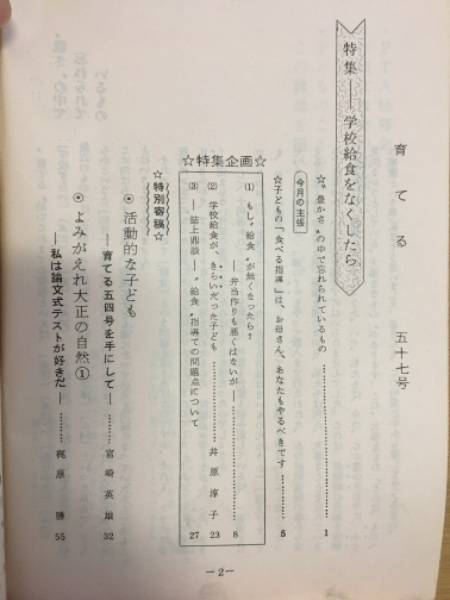 育てる 五十七号
特集――学校給食をなくしたら
☆“豊かさ”の中で忘れられているもの………………1
今月の主張
☆子どもの「食べる指導」は、お母さん、あなたもやるべきです…………5
☆特集企画☆
(1) もし“給食”が無くなったら?
――弁当作りも悪くはないが――…………8
(2) 学校給食が、きらいだった子ども…………井原淳子 23
(3) ――誌上鼎談――“給食”指導での問題点について 27
☆特別寄稿☆
◉活動的な子ども
――育てる五四号を手にして――………宮崎英雄 32
◉よみがえれ大正の自然①
――私は論文式テストが好きだ――………梶原勝 55
―2―